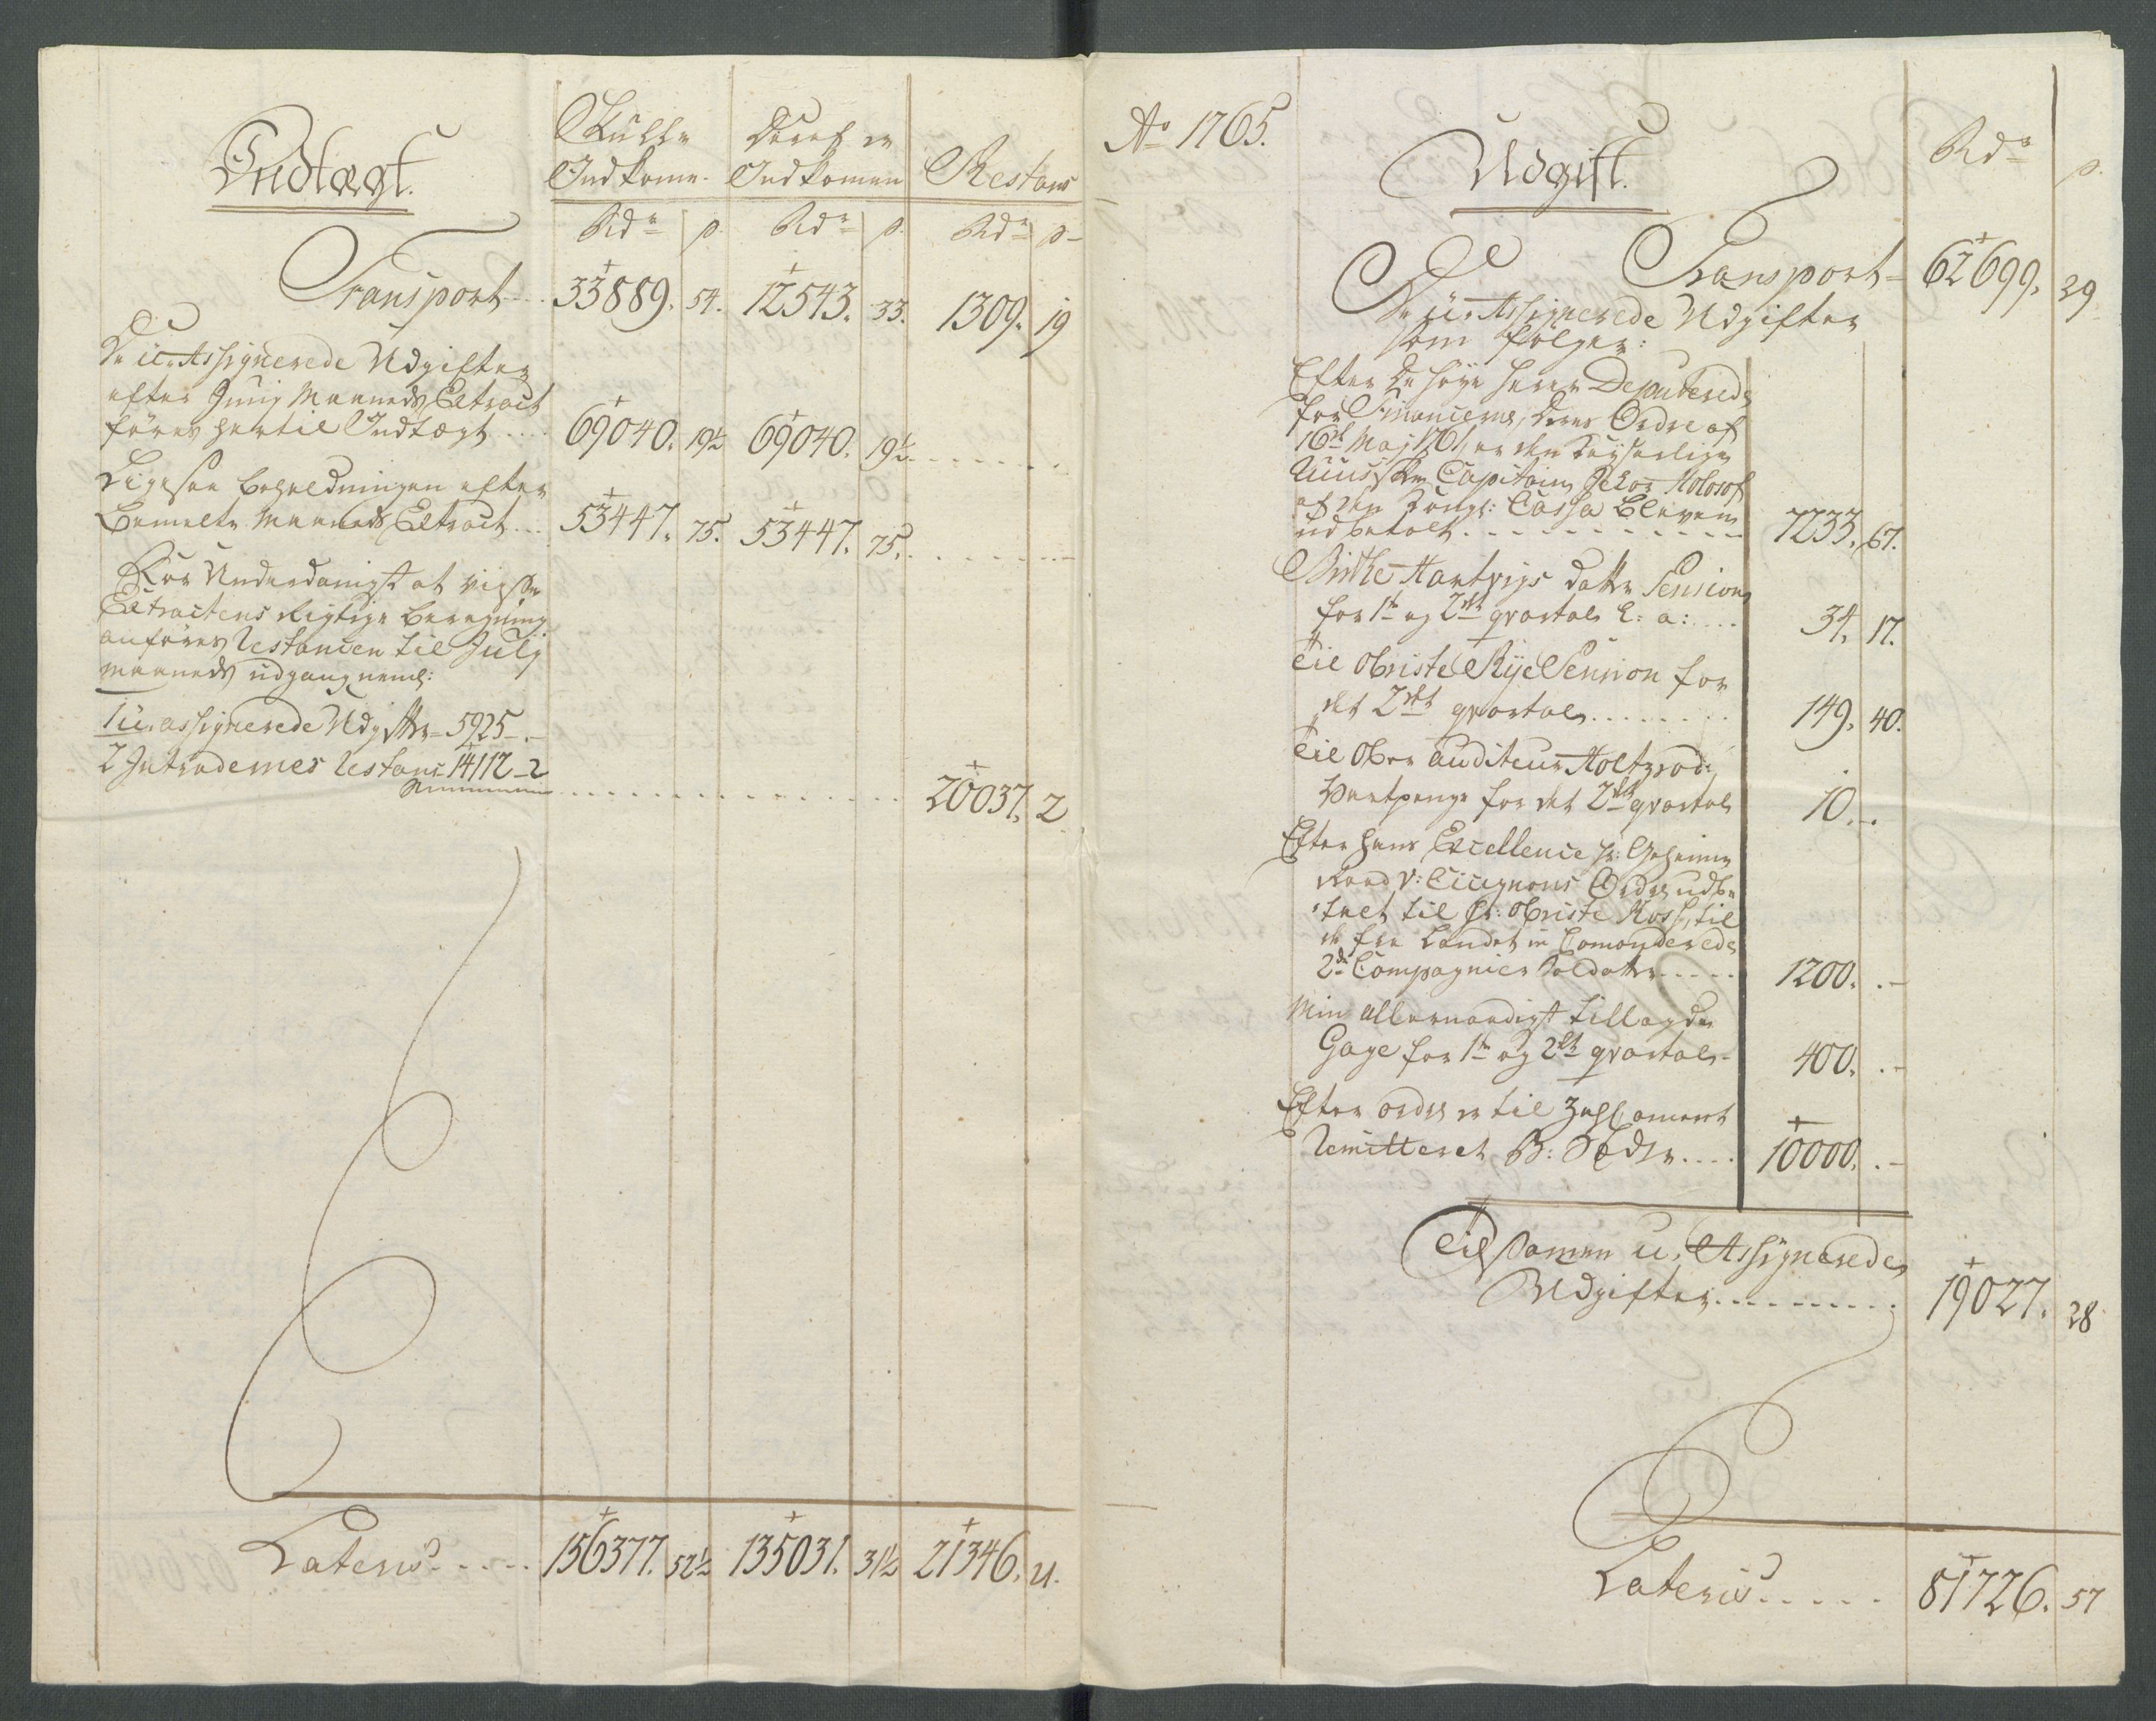 Indtægt.
Skulle Indkome.
Deraf er Indkomen
Restans
Rdr ß. Rdr ß. Rdr ß
Transport 33889. 54. 12543. 33. 1309. 19
De u-Assignerede Udgifter
efter Junij Maaneds Extract
föres hertil Indtægt 69040. 19½ 69040. 19½
Ligesaa beholdningen efter
bemelte Maaneds Extract 53447. 75. 53447. 75.
For Underdanigst at vise
Extractens Rigtige beregning
anföres Restancen til Julij
Maaneds udgang neml:
1 u-assignerede Udgifter 5925 -
2 Intradernes Restans 14112 - 2
20037. 2
Lateris 156377. 52½ 135031. 31½ 21346. 21.
Ao 1765.
Udgift.
Rdr ß.
Transport 62699. 29
De u-Assignerede Udgifter
som følger:
Efter De høye Herrer Deputerede
for Financerne, Deres Ordre af
16de Maj 1761, er den Keyserlige
Russiske Capitain Fedor Kolosof
af den Kongl: Cassa bleven
udbetalt 7233. 67.
Birthe Hartvigs datter Pension
for 1te og 2det qvartal h: a: 34. 17.
Til Obriste Rye Pension for
det 2det qvartal 149. 40.
Til Ober auditeur Holtzrod:
Vartpenge for det 2det qvartal 10. -.
Efter Hans Excellence Hr: Geheime
Raad v: Cicignons Ordre udbe
talt til Hr: Obriste Ross, til
de fra Landet in Comanderede
2de Compagnier Soldater 1200. -
Min allernaadigst tillagde
Gage for 1te og 2det qvartal 400. -
Efter ordre er til Zahlcameret
Remitteret B: Sedler 10000. -
Tilsamen u-Assignerede
Udgifter 19027. 28
Lateris 81726. 57